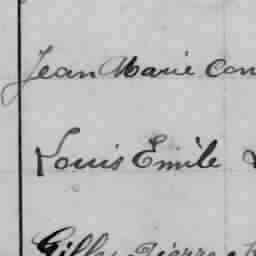 Jean Marie Con
Louis Emile
Pierre